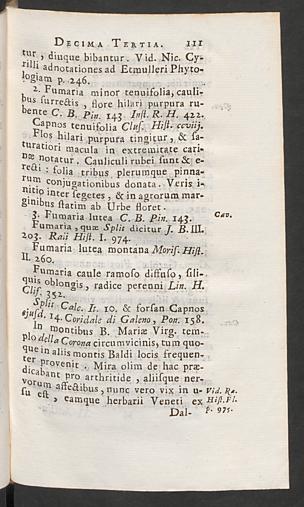 DECIMA TERTIA. 111
tur, diuque bibantur. Vid. Nic. Cy-
rilli adnotationes ad Etmulleri Phyto-
logiam p. 246.
2. Fumaria minor tenuifolia, cauli-
bus surrectis, flore hilari purpura ru-
bente C. B. Pin. 143. Inst. R. H. 422.
Capnos tenuifolia Clus. Hist. ccviij.
Flos hilari purpura tingitur, & sa-
turatiori macula in extremitate cari-
næ notatur. Cauliculi rubei sunt & e-
recti: folia tribus plerumque pinna-
rum conjugationibus donata. Veris i-
nitio inter segetes, & in agrorum mar-
ginibus statim ab Urbe floret.
3. Fumaria lutea C. B. Pin. 143. Cav.
Fumaria, quæ Split dicitur J. B. III.
203. Raii Hist. I. 974.
Fumaria lutea montana Moris. Hist.
II. 260.
Fumaria caule ramoso diffuso, sili-
quis oblongis, radice perenni Lin. H.
Clif. 352.
Split Calc. It. 10. & forsan Capnos
ejusd. 14. Coridale di Galeno, Pon. 158.
In montibus B. Mariæ Virg. tem-
plo della Corona circumvicinis, tum quo-
que in aliis montis Baldi locis frequen-
ter provenit. Mira olim de hac præ-
dicabant pro arthritide, aliisque ner-
vorum affectibus, nunc vero vix in u- Vid. Ra.
su est, eamque herbarii Veneti ex Hist. Pl.
Dal- p. 975.